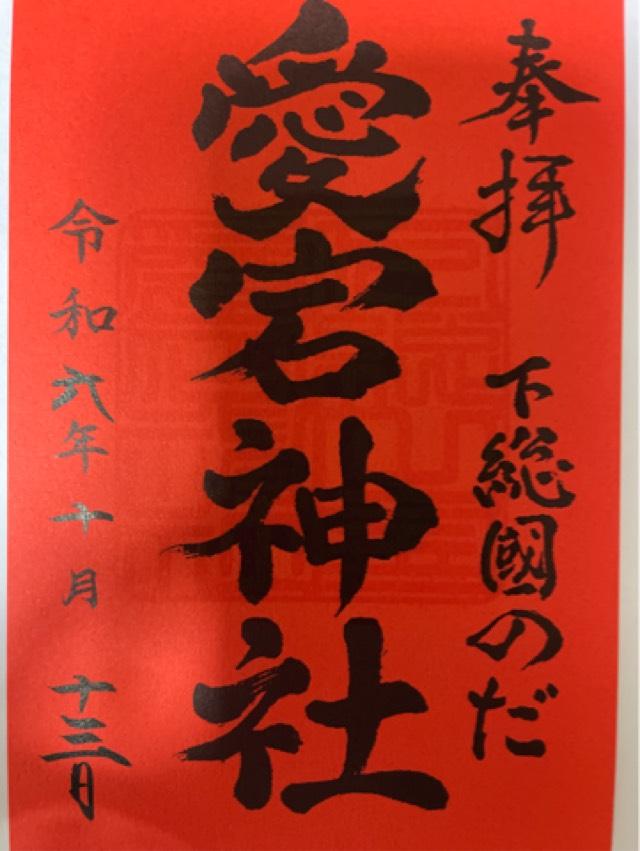 奉拝 下総國のだ
愛宕神社
令和六年十月十三日